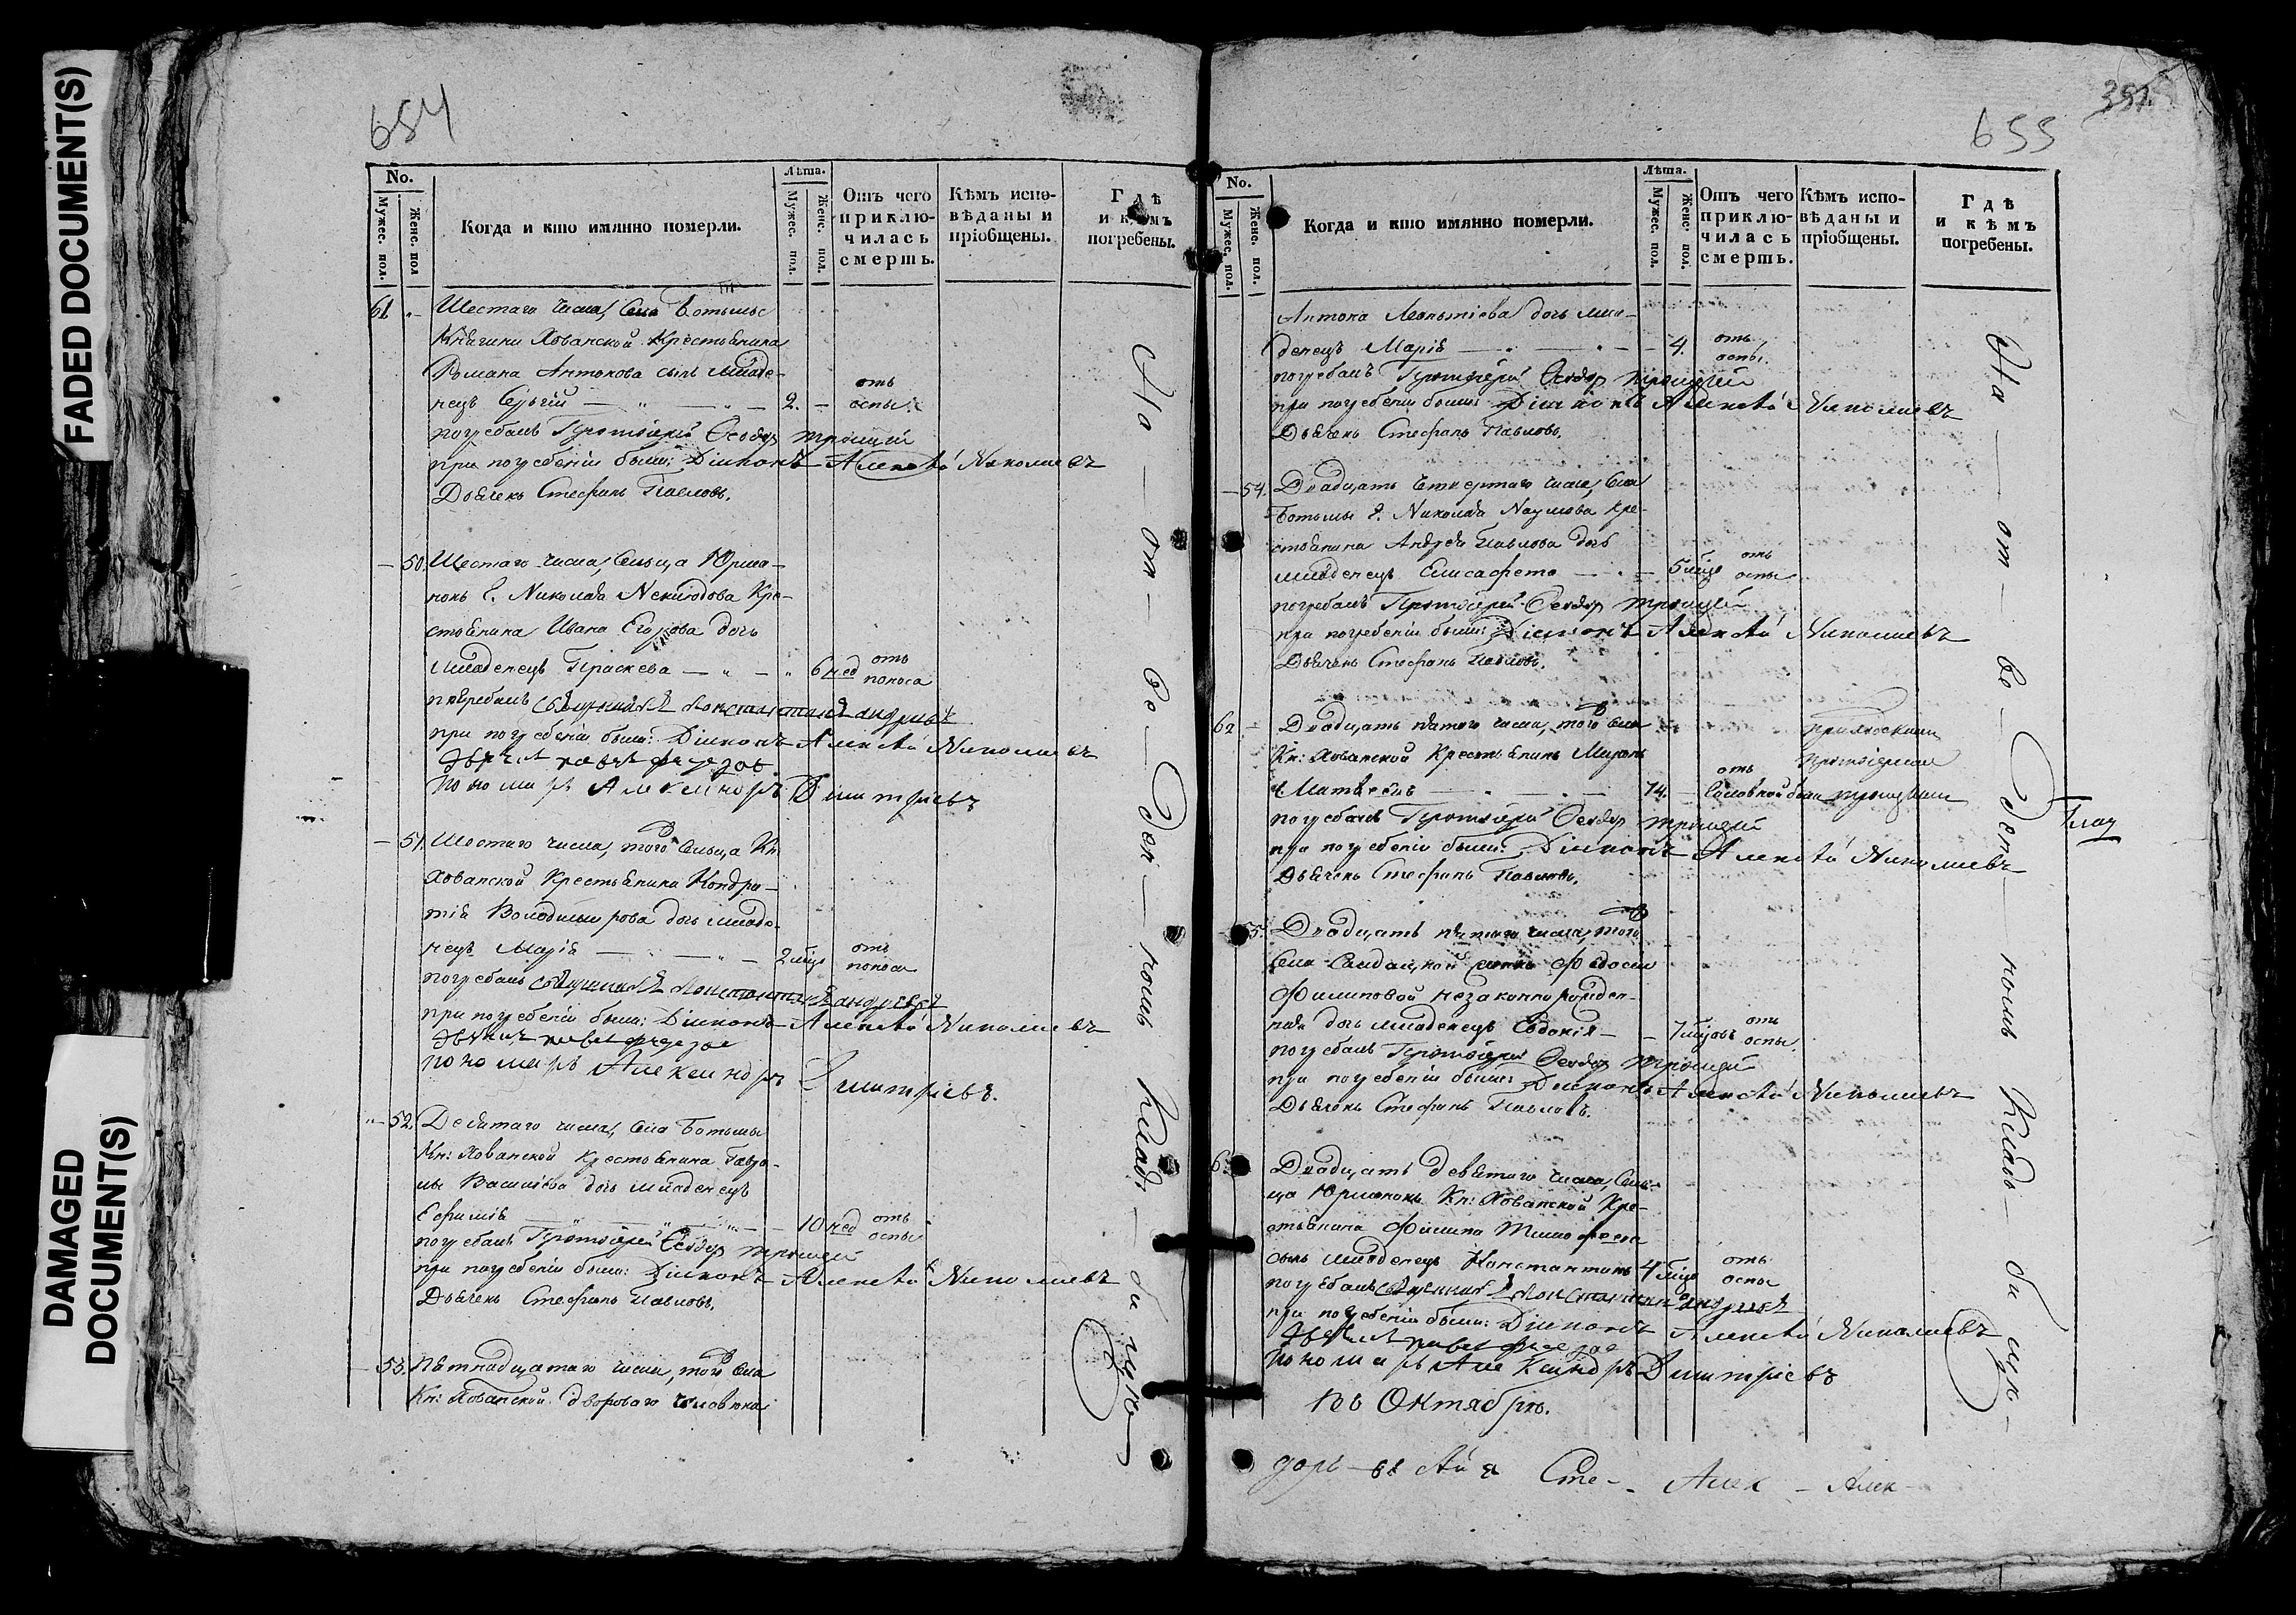 FADED DOCUMENT(S)
DAMAGED
DOCUMENT(S)
654
No.
Мужес. пол.
Женс. пол
Когда и кто имянно померли.
Лѣта.
Мужес. пол.
Женс. пол.
Отъ чего
приклю-
чилась
смерть.
Кѣмъ испо-
вѣданы и
пріобщены.
Гдѣ
и кѣмъ
погребены.
61. Шестаго числа, Села Ботьмы
Княгини Хованской Крестьянина
Романа Антонова сынъ младе-
нецъ Сергій 2. отъ оспы.
погребалъ Протоіерей Ѳеодоръ Троицкій
при погребеніи были: Діаконъ Алексѣй Николаевъ
Дьячекъ Стефанъ Павловъ.
50. Шестаго числа, Сельца Юрма-
нокъ Г. Николая Неклюдова Кре-
стьянина Ивана Егорова дочь
младенецъ Праскева 6 нед отъ поноса
погребалъ Священникъ Константинъ Андреевъ
при погребеніи были: Діаконъ Алексѣй Николаевъ
Пономарь Александръ Димитріевъ
51. Шестаго числа, того Сельца Кн:
Хованской Крестьянина Кондра-
тія Володимирова дочь младе-
нецъ Марія 2 мѣс отъ поноса
погребалъ Священникъ Константинъ Андреевъ
при погребеніи были: Діаконъ Алексѣй Николаевъ
Пономарь Александръ Димитріевъ.
52. Девятаго числа, Села Ботьмы
Кн: Хованской Крестьянина Гаври-
лы Васильева дочь младенецъ
Евфимія 10 нед отъ оспы
погребалъ Протоіерей Ѳеодоръ Троицкій
при погребеніи были: Діаконъ Алексѣй Николаевъ
Дьячекъ Стефанъ Павловъ.
53. Пятнадцатаго числа, того Села
Кн: Хованской двороваго человѣка
На — от — ве — ден — номъ Клад —
655
No.
Мужес. пол.
Женс. пол.
Когда и кто имянно померли.
Лѣта.
Мужес. пол.
Женс. пол.
Отъ чего
приклю-
чилась
смерть.
Кѣмъ испо-
вѣданы и
пріобщены.
Гдѣ
и кѣмъ
погребены.
Антона Леонтіева дочь мла-
денецъ Марія 4. отъ оспы.
погребалъ Протоіерей Ѳеодоръ Троицкій
при погребеніи были: Діаконъ Алексѣй Николаевъ
Дьячекъ Стефанъ Павловъ.
54. Двадцать четвертаго числа, Села
Ботьмы Г. Николая Наумова Кре-
стьянина Андрея Павлова дочь
младенецъ Елисафета 5 мѣс отъ оспы
погребалъ Протоіерей Ѳеодоръ Троицкій
при погребеніи были: Діаконъ Алексѣй Николаевъ
Дьячекъ Стефанъ Павловъ.
62. Двадцать пятаго числа, того Села
Кн: Хованской Крестьянинъ Миронъ
Матвѣевъ 74. отъ головной боли
погребалъ Протоіерей Ѳеодоръ Троицкій
при погребеніи были: Діаконъ Алексѣй Николаевъ
Дьячекъ Стефанъ Павловъ.
55. Двадцать пятаго числа, того
Села Солдатской жены Ѳедосьи
Филиповой незаконно рожден-
ная дочь младенецъ Евдокія 7 мѣс отъ оспы.
погребалъ Протоіерей Ѳеодоръ Троицкій
при погребеніи были: Діаконъ Алексѣй Николаевъ
Дьячекъ Стефанъ Павловъ.
Двадцать девятаго числа, Сель-
ца Юрманокъ Кн: Хованской Кре-
стьянина Филипа Тимофеева
сынъ младенецъ Константинъ 4 мѣс отъ оспы
погребалъ Священникъ Константинъ Андреевъ
при погребеніи были: Діаконъ Алексѣй Николаевъ
Пономарь Александръ Димитріевъ
Въ Октябрѣ.
На — от — ве — ден — номъ Клад — би щѣ —
Сте — Алек — Алек